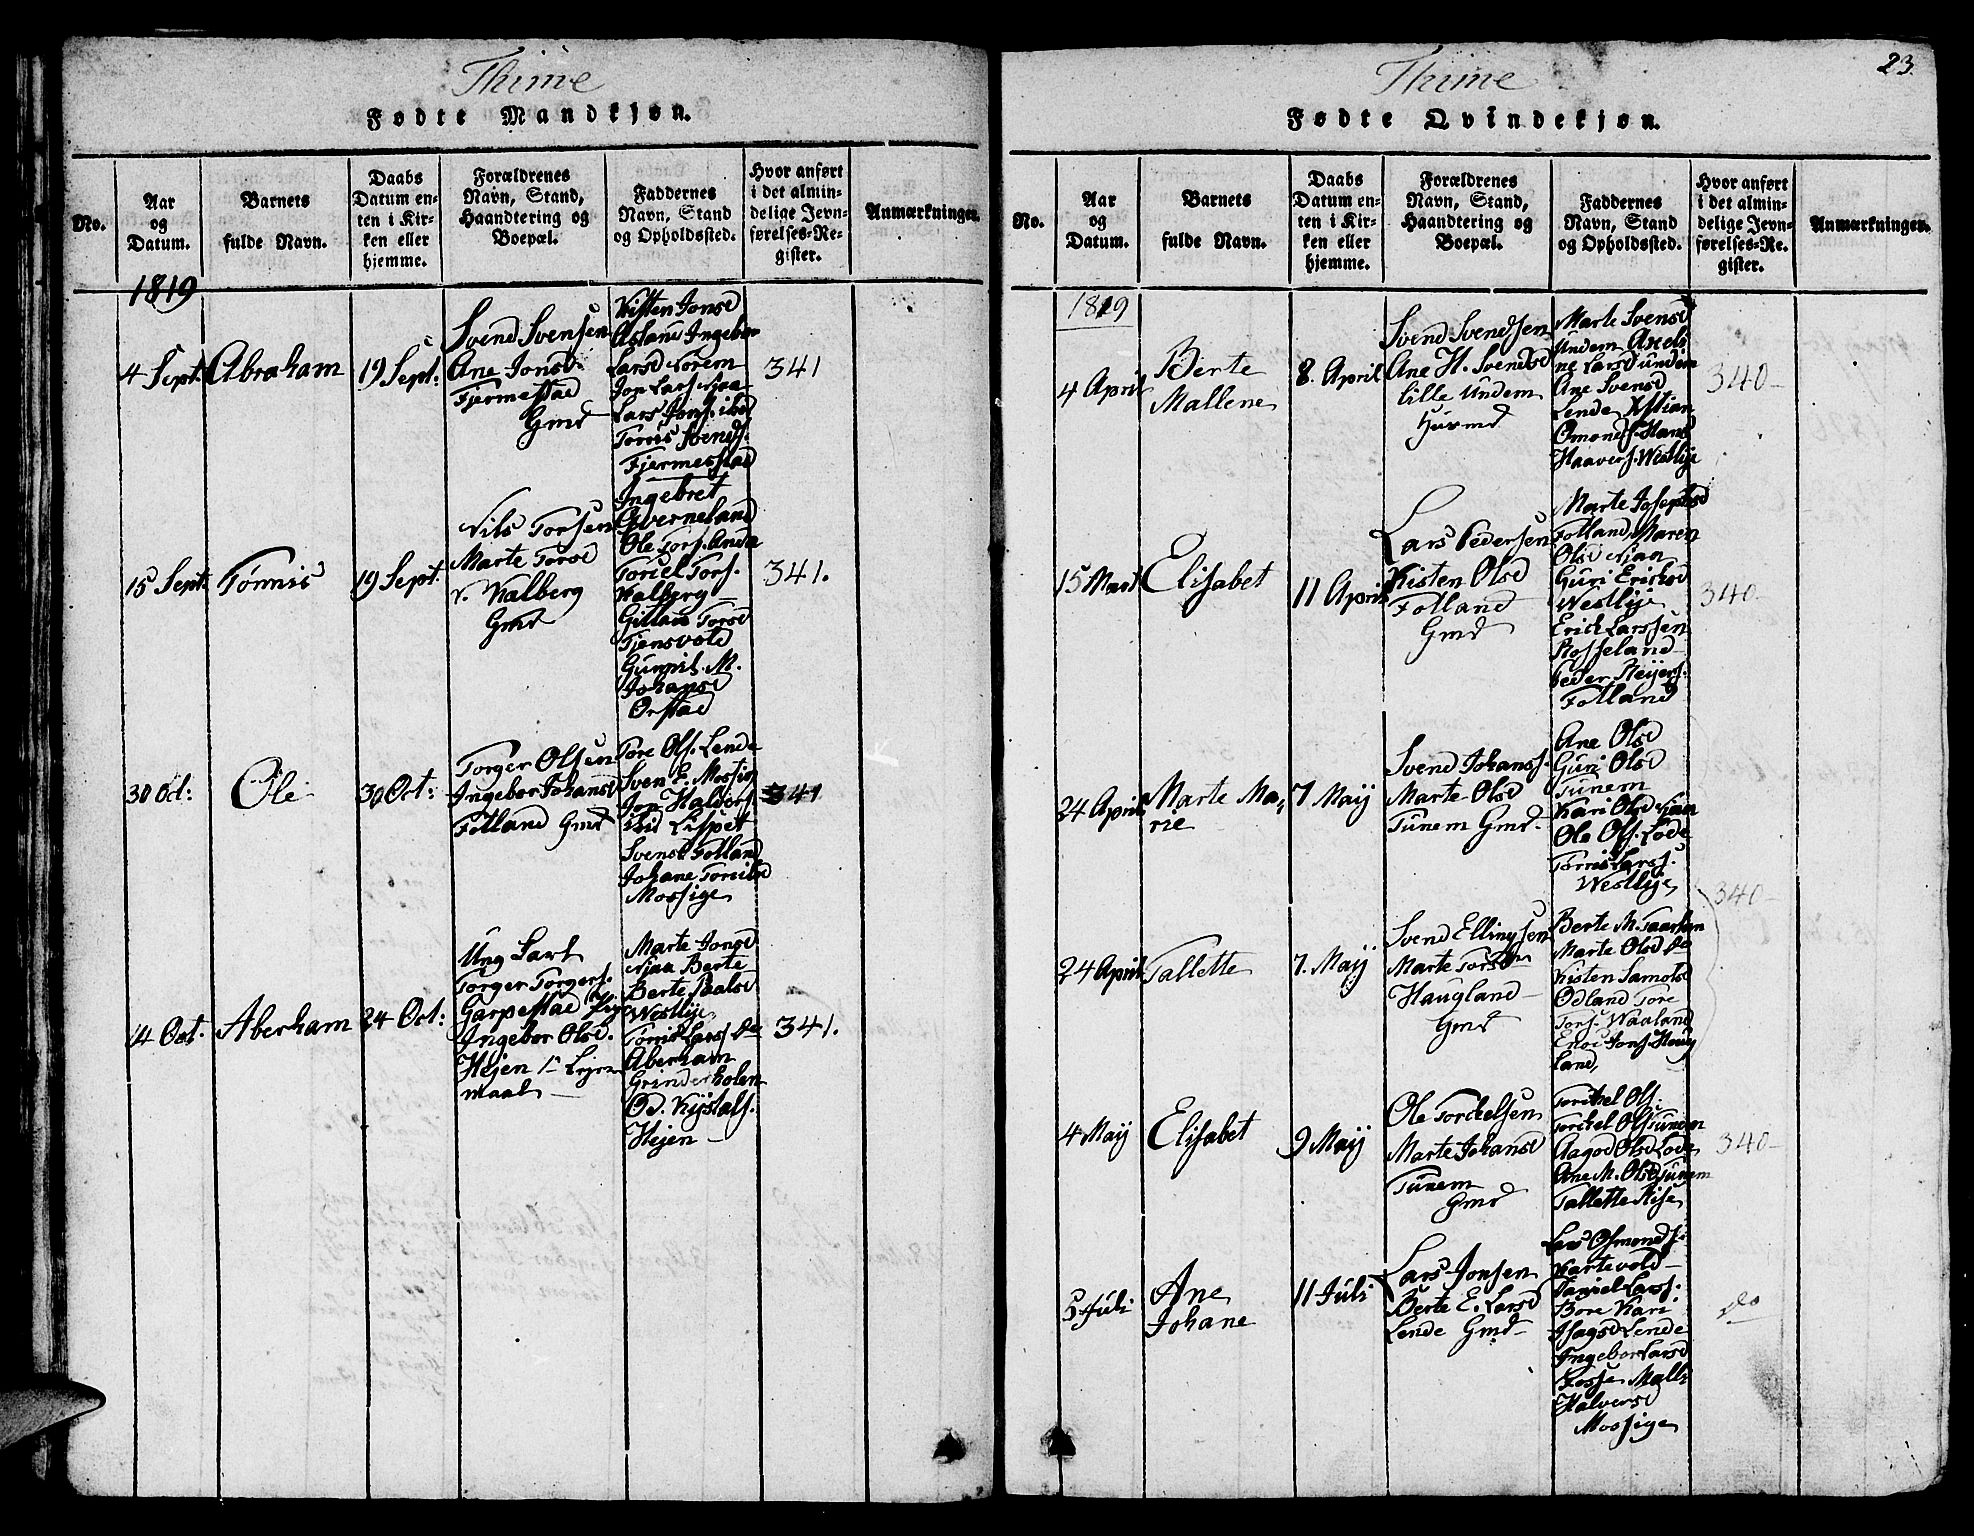 Thime
Fødte Mandkjøn.
No.
Aar
og
Datum.
Barnets
fulde Navn.
Daabs
Datum en-
ten i Kir-
ken eller
hjemme.
Forældrenes
Navn, Stand,
Haandtering og
Boepæl.
Faddernes
Navn, Stand
og Opholdssted.
Hvor anført
i det almin-
delige Jevn-
førelses-Re-
gister.
Anmærkninger.
1819
4 Sept.
Abraham
19 Sept:
Svend Svensen
Ane Jonsd
Fjermestad
Gmd
Kisten Jonsd
Asland Ingebor
Larsd Lorem
Jon Lars. Njaa
Lars Jons. ibid
Tønnis Svends.
Fjermestad
341
15 Sept.
Tønnis
19 Sept.
Nils Torsen
Marte Torsd
v. Kalberg
Gmd
Ingebret
Qverneland
Ole Tors. Anda
Toriel Tors.
Kalberg
Gitlau Torsd
Tjensvold
Gunnil. M.
Johansd
Orstad
341.
30 Oct:
Ole
30 Oct:
Torger Olsen
Ingebor Johansd
Fotland Gmd
Tore Ols. Lende
Sven E. Mossig
Jon Halders.
ibid Lispet
Svensd Fotland
Johane Tønnisd
Mossige
341
14 Oct.
Aberham
24 Oct:
Ung Karl
Torger Torgers.
Garpestad Pige
Ingebor Olsd.
Hejen 1te Lejer
maal
Marte Jonsd
Njaa Berte
Berte Paalsd
Westlije
Tønnis Lars. do
Aberham
Grinderholen
Od. Kystals.
Hejen
341.
23.
Thime
Fødte Qvindekjøn.
No.
Aar
og
Datum.
Barnets
fulde Navn.
Daabs
Datum en-
ten i Kir-
ken eller
hjemme.
Forældrenes
Navn, Stand,
Haandtering og
Boepæl.
Faddernes
Navn, Stand
og Opholdssted.
Hvor anført
i det almin-
delige Jevn-
førelses-Re-
gister.
Anmærkninger.
1819
4 April
Berte
Mallene
8. April
Svend Svendsen
Ane H. Svendsd
lille Undem
Husmd
Marte Svensd
Undem Andri
ne Larsd undem
Ane Svensd
Lende Kstian
Omonds. Hans
Haavers. Westlije
340
15 Mart
Elisabet
11 April
Lars Pedersen
Kisten Olsd
Fotland
Gmd
Marte Josephsd
Fotland, Maren
Olsd Njaa
Guri Ericksd
Westlije
Erick Larssen
Rosseland
Peder Reijers.
Fotland
340
24 April
Marte Ma,
rie
7 Maij
Svend Johanss.
Marte Olsd
Tunem Gmd.
Ane Olsd
Guri Olsd
Tunem
Kari Olsd Njaa
Ole Ols. Lode
Tønnis Larss.
Westlije
340
24 April
Tallette
7. Maij
Svend Ellingsen
Marte Torsd
Haugland
Gmd
Berte M. Taarlan
Marte Olsd do
Kisten Samelsd
Odland Tore
Tors. Waaland
Enoc Jons. Houg
land,
4 Maij
Elisabet
9 Maij
Ole Torckelsen
Marte Johansd
Tunem
Gmd
Torckel Ols.
Torckel Ols undem
Aagod Olsd Lode
Ane M. Olsd Tunem
Tallette Rise
340
5 Juli
Ane
Johane
11 Juli
Lars Jonsen
Berte E. Larsd
Lende Gmd
Lars Osmonds.
Kartevold
Daniel Lars.
Bore Kari
Isagsd Lende
Ingebor Larsd
Fosse Malli
Halversd
Mossige
do